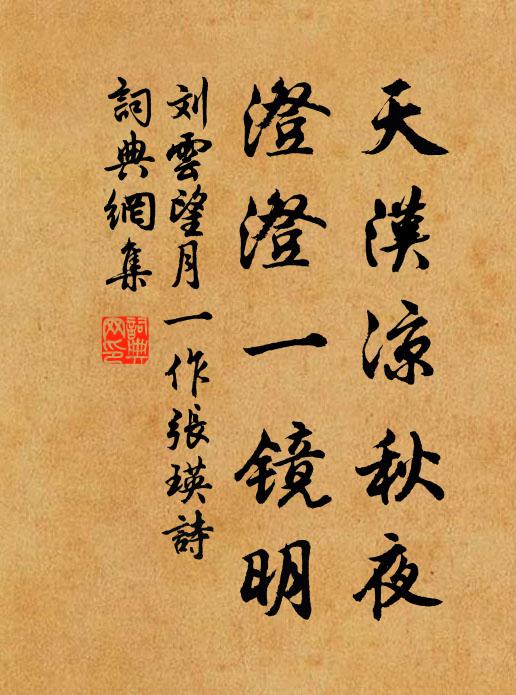 天漢凉秋夜
澄澄一镜明
刘雲望月一作張瑛詩
詞典網集
詞典网印